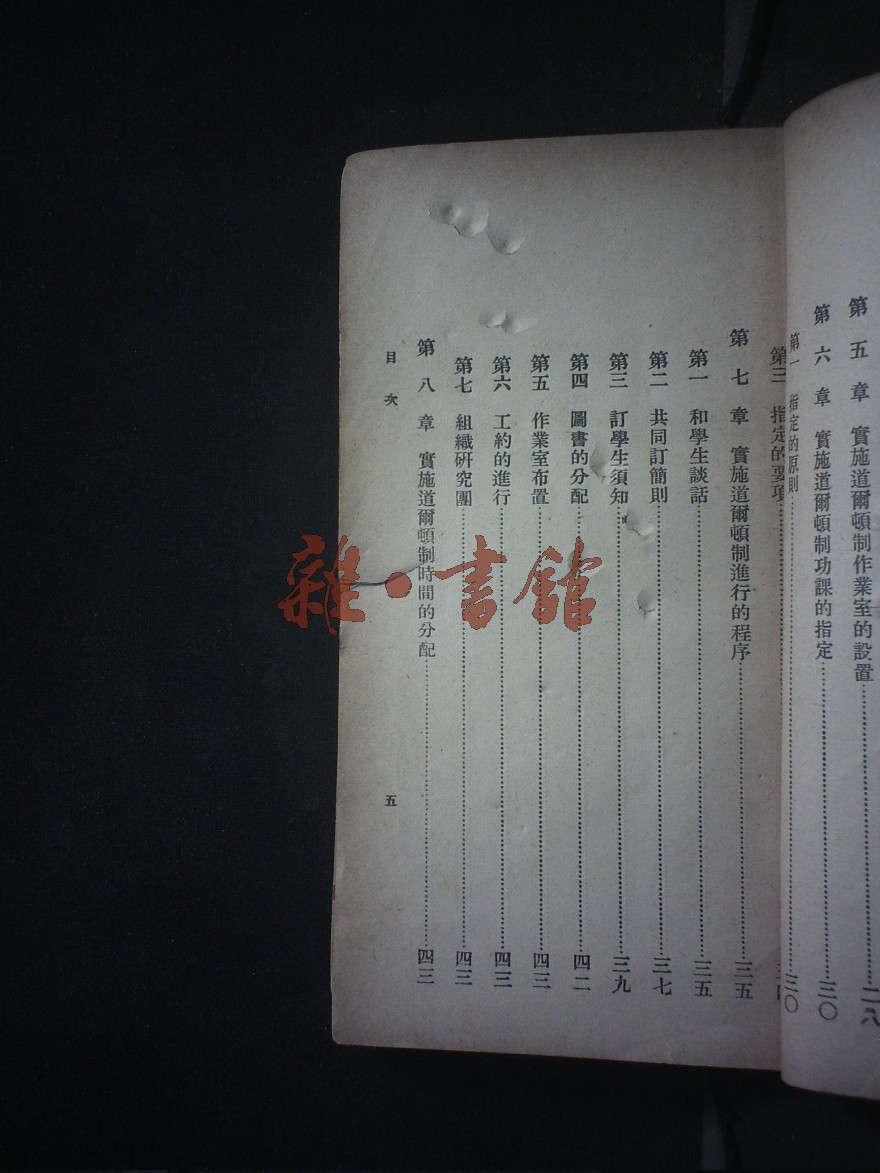 第五章　實施道爾頓制作業室的設置……二八
第六章　實施道爾頓制功課的指定……三〇
第一　指定的原則……三〇
第三　指定的要項……三四
第七章　實施道爾頓制進行的程序……三五
第一　和學生談話……三五
第二　共同訂簡則……三七
第三　訂學生須知……三九
第四　圖書的分配……四二
第五　作業室布置……四三
第六　工約的進行……四三
第七　組織研究團……四三
第八章　實施道爾頓制時間的分配……四三
目次
五
雜·書館